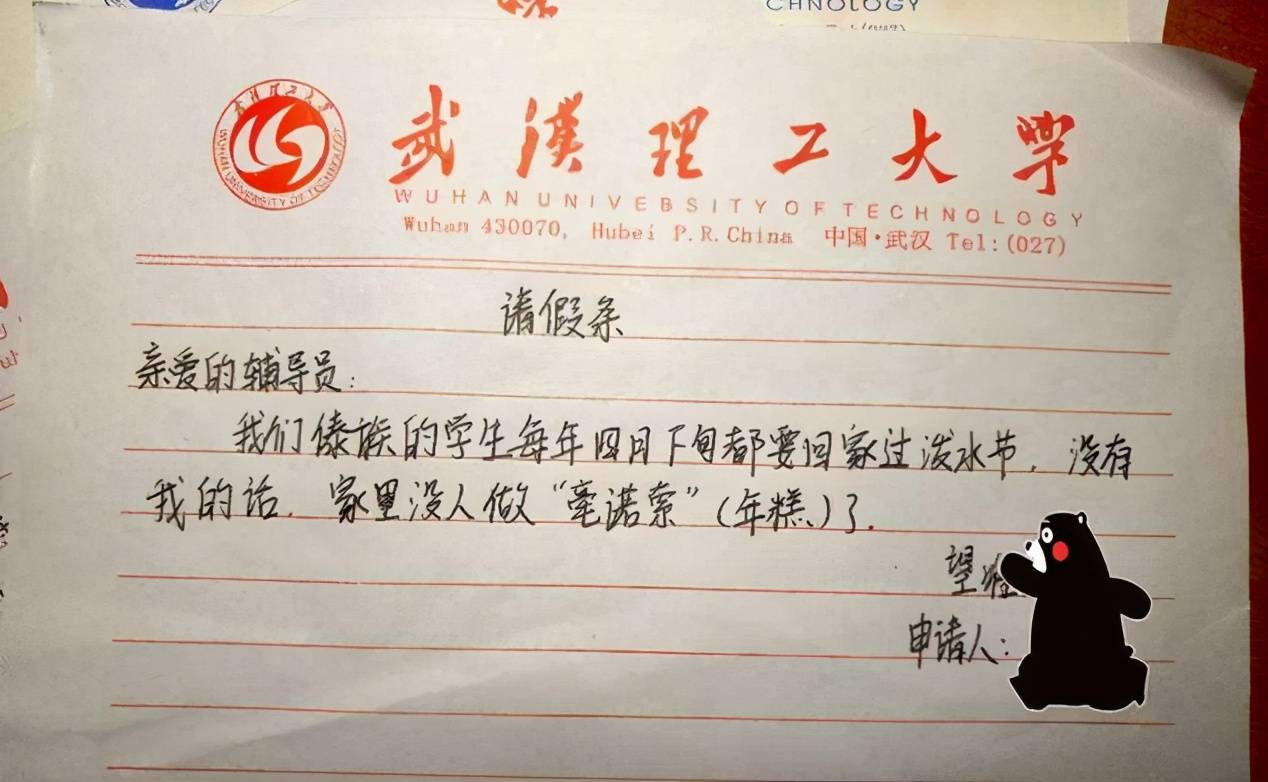 CHNOLOGY
武漢理工大學
WUHAN UNIVEBSITY OF TECHNOLOGY
Wuhan 430070, Hubei P.R.China 中国·武汉 Tel:(027)
请假条
亲爱的辅导员:
我们傣族的学生每年四月下旬都要回家过泼水节,没有
我的话,家里没人做“毫诺索”(年糕)了.
望
申请人: